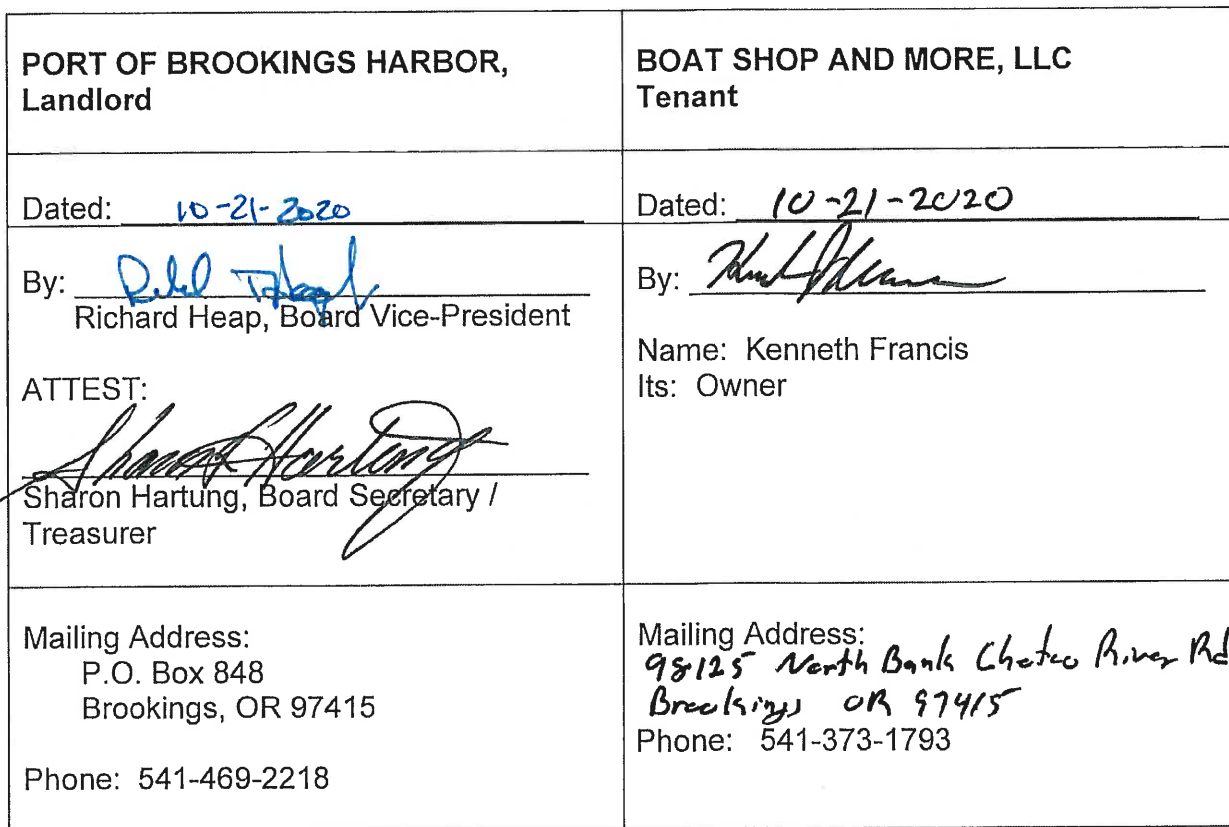 PORT OF BROOKINGS HARBOR,
Landlord
Dated: 10-21-2020
By:
Richard Heap, Board Vice-President
ATTEST:
Sharon Hartung
Sharon Hartung, Board Secretary /
Treasurer
Mailing Address:
P.O. Box 848
Brookings, OR 97415
Phone: 541-469-2218
BOAT SHOP AND MORE, LLC
Tenant
Dated: 10-21-2020
By:
Name: Kenneth Francis
Its: Owner
Mailing Address:
98125 North Bank Chetco River Rd
Brookings OR 97415
Phone: 541-373-1793